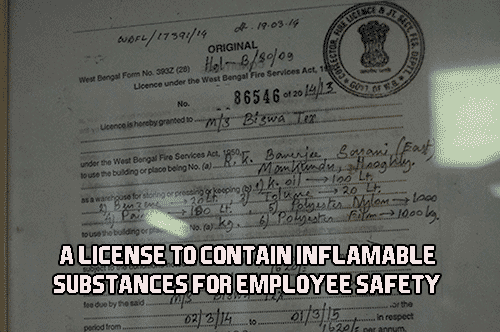 WBFL/17391/14
dt. 19-03-14
ORIGINAL
Hgl-B/80/09
West Bengal Form No. 393Z (28)
Licence under the West Bengal Fire Services Act,
No. 86546 of 20 14/13
Licence is hereby granted to M/S Biswa Tex
under the West Bengal Fire Services Act, 1950
to use the building or place being No. (a) R. K. Banerjee Sarani (East)
Mankundu, Hooghly.
as a warehouse for storing or pressing or keeping (b) 1) K. oil → 100 Lt.
2) Benzene → 20 Lt. 3) Tolune → 20 Lt.
4) Paint → 100 Lt. 5) Polyester Nylon → 1000
kg. 6) Polyester Film → 1000 kg.
to use the building or place No. (a)
A LICENSE TO CONTAIN INFLAMABLE
SUBSTANCES FOR EMPLOYEE SAFETY
subject to the
fee due by the said M/S Biswa Tex or the
period from 02/3/14 to 01/3/15 in respect
1620/= per annum
COLLECTOR, FIRE LICENCE & JT. SECY. FES. DEPTT.
GOVT. OF W.B.